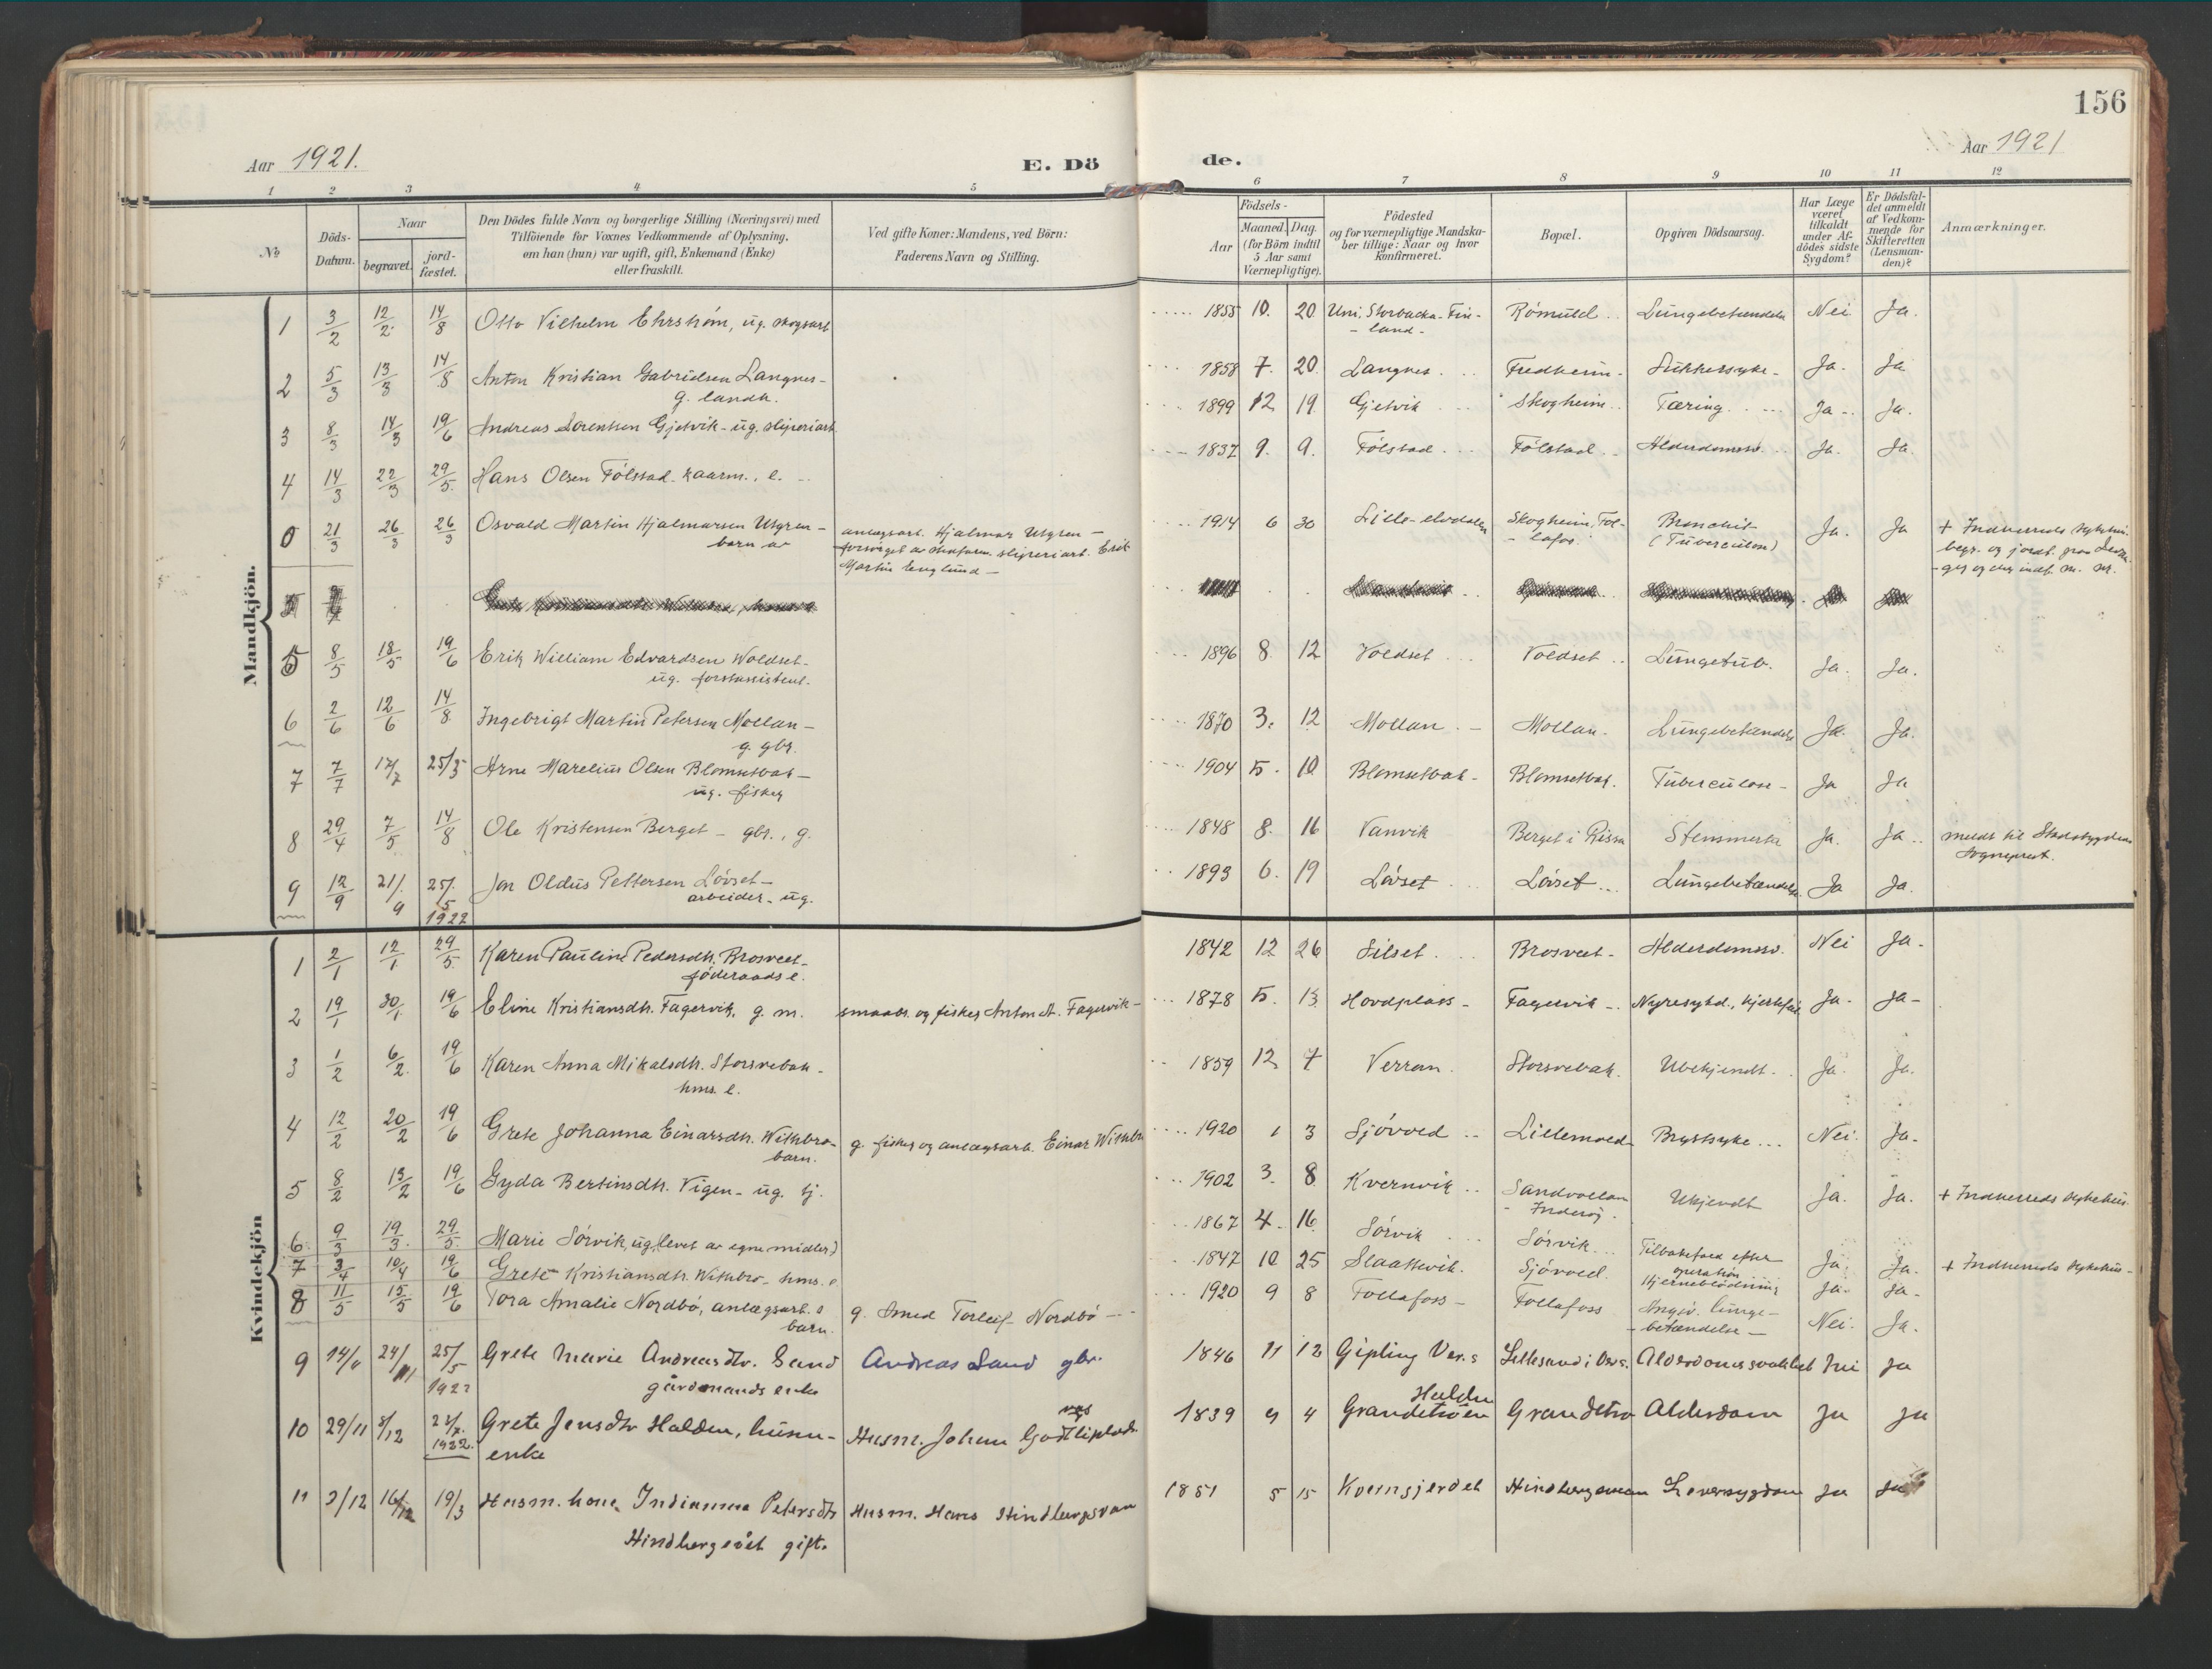 156
Aar 1921.
E. Dö
de.
Aar 1921
1 2 3 4 5 6 7 8 9 10 11 12
№
Döds-
Datum.
Naar
begravet.
jord-
fæstet.
Den Dödes fulde Navn og borgerlige Stilling (Næringsvei) med
Tilföiende for Voxnes Vedkommende af Oplysning,
om han (hun) var ugift, gift, Enkemand (Enke)
eller fraskilt.
Ved gifte Koner: Mandens, ved Börn:
Faderens Navn og Stilling.
Födsels-
Aar
Maaned.
Dag.
(for Börn indtil
5 Aar samt
Værnepligtige).
Födested
og for værnepligtige Mandska-
ber tillige: Naar og hvor
konfirmeret.
Bopæl.
Opgiven Dödsaarsag.
Har Læge
været
tilkaldt
under Af-
dödes sidste
Sygdom?
Er Dödsfal-
det anmeldt
af Vedkom-
mende for
Skifteretten
(Lensman-
den)?
Anmærkninger.
Mandkjön.
1 3/2 12/2 14/8 Otto Vilhelm Ehrström, ug. skogsarb 1855 10. 20 Uni, Storbacka, Fin-
-land- Römuld Lungebetændelse Nei Ja.
2 5/3 13/3 14/8 Anton Kristian Gabrielsen Langnes-
g. landh. 1858 7. 20. Langnes Fredheim Sukkersyke Ja. Ja
3 8/3 14/3 19/6 Andreas Sorensen Gjelvik - ug. sliperiarb 1899 12 19 Gjelvik Skogheim Tæring Ja Ja.
4 14/3 22/3 29/5 Hans Olsen Fölstad kaarm., e. 1837 9. 9. Fölstad Fölstad Alderdomssv. Ja. Ja
0 21/3 26/3 26/3 Osvald Martin Hjalmarsen Utgren-
barn av anlægsarb. Hjalmar Utgren-
forsörget av sliperiarb. Erik
Martin Englund- 1914 6 30 Lille- Skogheim, Fol-
-lafos. Bronchit
(Tuberculose) Ja. Ja + Indherreds sykehus.
begr. og jordf. paa Levan-
-ger
5 8/5 18/5 19/6 Erik William Edvardsen Woldset-
ug. forstassistent. 1896 8. 12 Voldset Voldset Lungetub. Ja. Ja.
6 2/6 12/6 14/8 Ingebrigt Martin Petersen Mollan-
g. gbr. 1870 3. 12 Mollan Mollan. Lungebetændelse Ja. Ja.
7 7/7 17/7 25/5 Arne Marelius Olsen Blomsetbak-
ug. fisker 1904 5. 10 Blomsetbak Blomsetbak. Tuberculose Ja Ja
8 29/4 7/5 14/8 Ole Kristensen Berget - gbr., g. 1848 8. 16 Vanvik Berget i Rissa Ja. Ja meldt til Stadsbygdens
Sogneprest.
9 12/9 21/9 25/5
1922 Jon Oldus Pettersen Lövset-
arbeider - ug. 1893 6. 19 Lövset Lövset Lungebetændelse Ja Ja.
Kvindekjön
1 2/1 12/1 29/5 Karen Pauline Pedersdtr. Brosveet-
föderaads e. 1842 12 26 Silset Brosveet Alderdomssv. Nei Ja.
2 19/1 30/1 19/6 Eline Kristiansdtr. Fagervik, g. m. smaabr. og fisker Anton A. Fagervik- 1878 5. 13 Hovdplass Fagervik Nyresykd., hjertefeil Ja. Ja-
3 1/2 6/2 19/6 Karen Anna Mikalsdtr. Storsvebak-
hms. e. 1859 12 7 Verran Storsvebak. Ubekjendt Ja. Ja.
4 12/2 20/2 19/6 Grete Johanna Einarsdtr. Withbro-
barn. g. fisker og anlægsarb. Einar Withbro 1920 1 3 Sjövold Lillemoed Brystsyke Nei. Ja.
5 8/2 13/2 19/6 Gyda Bertinsdtr. Vigen - ug. tj. 1902 3. 8 Kvernvik Sandvollan
Inderöy. Ukjendt Ja. Ja. + Indherreds sykehus.
6 9/3 19/3 29/5 Marie Sörvik, ug. (levet av egne midler) 1867 4. 16 Sörvik Sörvik Tilbakefald efter
operation Ja Ja. + Indherreds sykehus-
7 3/4 10/4 19/6 Grete Kristiansdtr. Withbro, hms. e. 1847 10 25 Slaattevik. Sjövold. Hjerneblödning Ja. Ja.
8 11/5 15/5 19/6 Tora Amalie Nordbö, anlægsarb.s
barn. g. Smed Torleif Nordbö 1920 9 8 Follafoss Follafoss lunge-
-betændelse- Nei. Ja.
9 14/11 24/11 25/5
1922 Grete Marie Andreasdtr. Sand
gårdmands enke Andreas Sand gbr. 1846 11 12 Gipling Ver.s Lillesand i Alderdomssvakhet Nei Ja
10 29/11 8/12 1922. Grete Jensdtr Halden, husm-
enke Husm. Johan 1839 9 4 Halden
Grandetröen Grandetrø Alderdom Ja Ja
11 3/12 16/12 19/3 Husm. kone Indianna Petersdtr
gift. Husm. Hans Hindbergsvan 1851 5 15 Kvernsjerdet Leversygdom Ja Ja